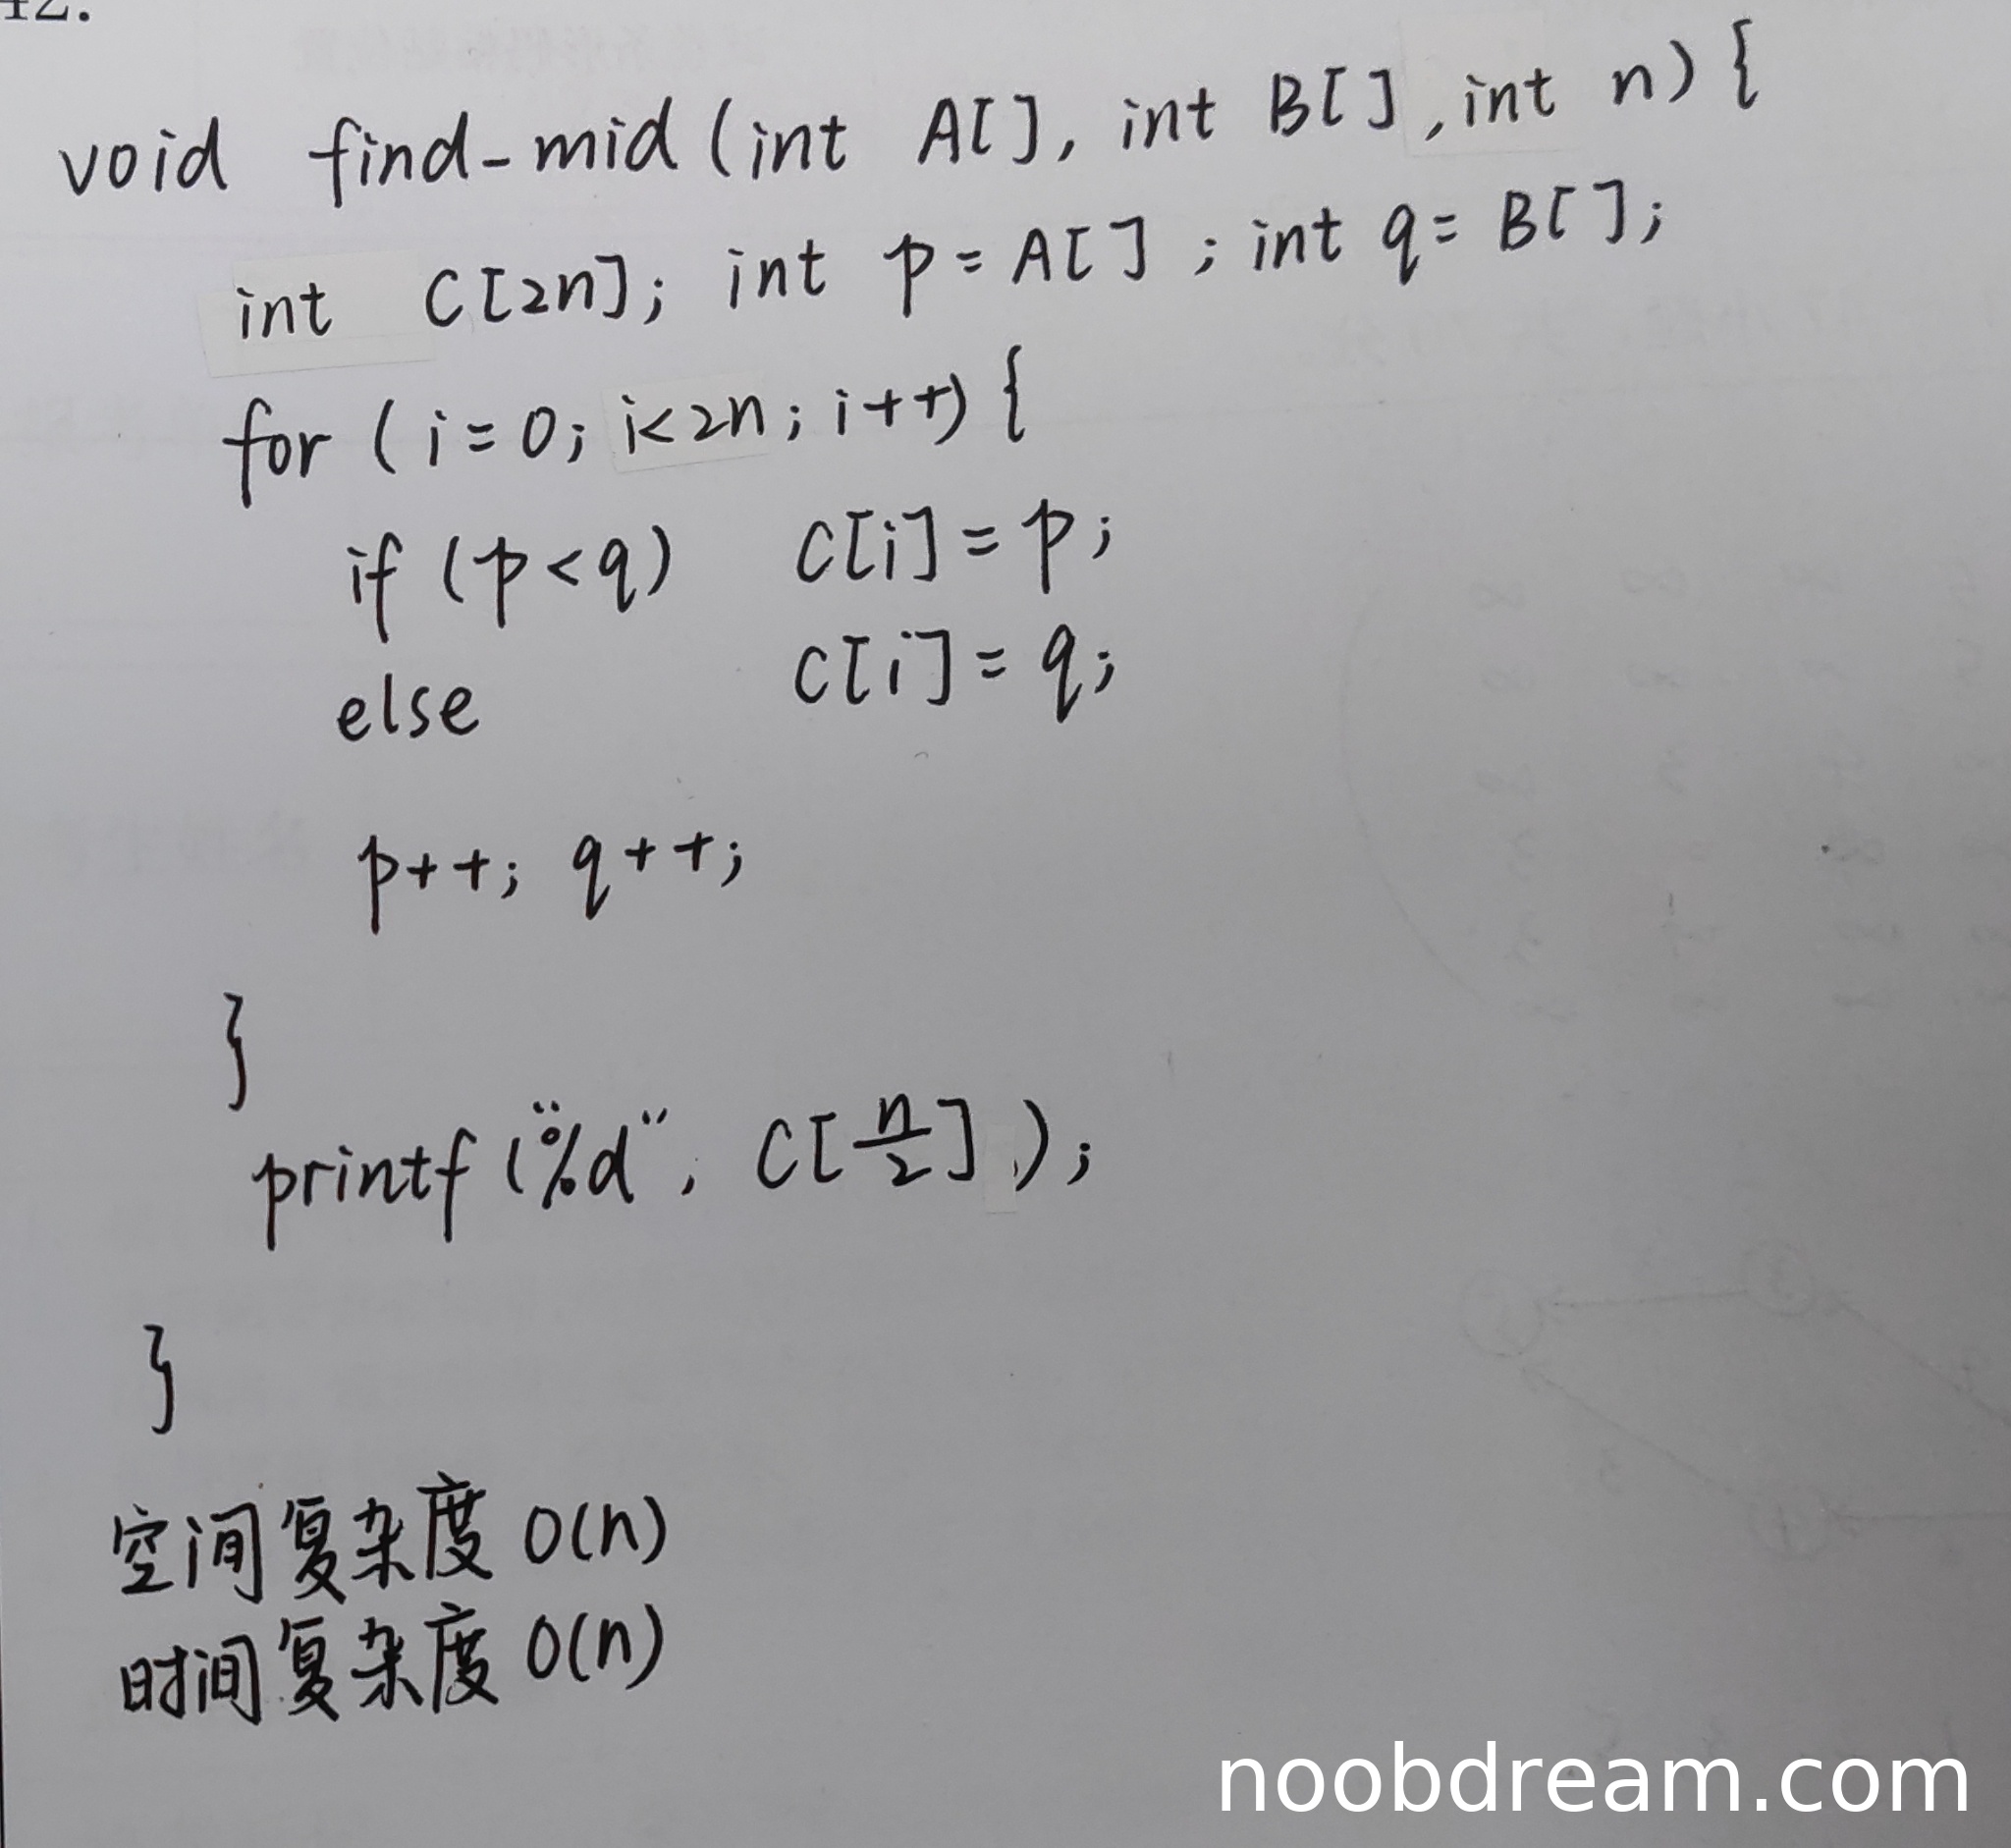 42.
void find-mid (int A[], int B[], int n) {
int C[2n]; int p = A[] ; int q = B[];
for (i = 0; i<2n; i++) {
if (p < q) C[i] = p;
else C[i] = q;
p++; q++;
}
printf ("%d", C[n/2]);
}
空间复杂度 O(n)
时间复杂度 O(n)
noobdream.com